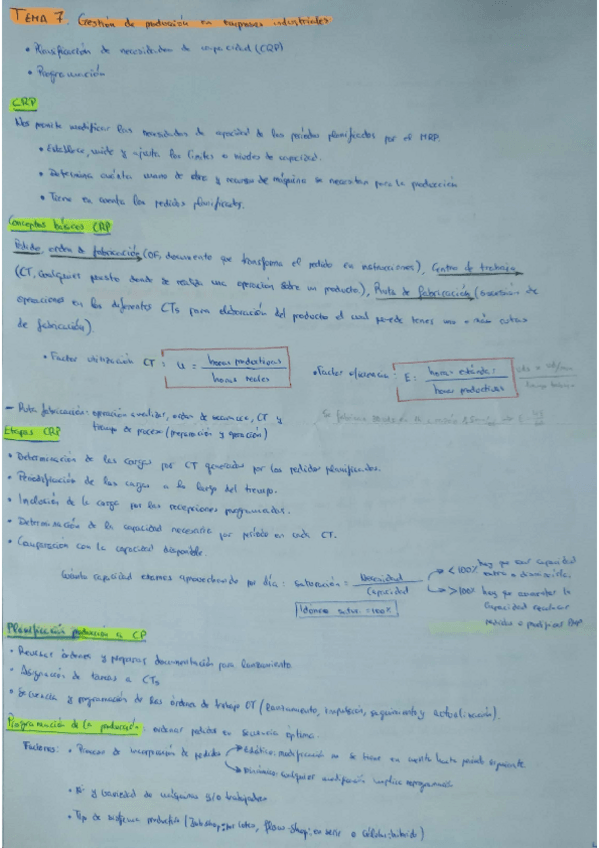 TEMA 7. Gestión de producción en empresas industriales
• Planificación de necesidades de capacidad (CRP)
• Programación
CRP
Nos permite modificar las necesidades de capacidad de los periodos planificados por el MRP.
• Establece, mide y ajusta los límites o niveles de capacidad.
• Determina cuánta mano de obra y recursos de máquina se necesitan para la producción
• Tiene en cuenta los pedidos planificados.
Conceptos básicos CRP
Pedido, orden de fabricación (OF, documento que transforma el pedido en instrucciones), Centro de trabajo
(CT, cualquier puesto donde se realiza una operación sobre un producto), Ruta de fabricación (sucesión de
operaciones en los diferentes CTs para elaboración del producto el cual puede tener una o más rutas
de fabricación).
• Factor utilización CT: U = horas productivas / horas reales
• Factor eficiencia: E = horas estándar / horas productivas
– Ruta fabricación: operación a realizar, orden de secuencia, CT y
tiempo de proceso (preparación y operación)
Etapas CRP
• Determinación de las cargas por CT generadas por los pedidos planificados.
• Periodificación de las cargas a lo largo del tiempo.
• Inclusión de la carga por las recepciones programadas.
• Determinación de la capacidad necesaria por periodo en cada CT.
• Comparación con la capacidad disponible.
Cuánta capacidad estamos aprovechando por día: saturación = Necesidad / Capacidad
< 100% hay que usar capacidad
extra o disminuirla.
> 100% hay que aumentar la
capacidad, recolocar
pedidos o modificar PMP
Idóneo satur. = 100%
Planificación producción a CP
• Revisar órdenes y preparar documentación para lanzamiento
• Asignación de tareas a CTs
• Secuencia y programación de las órdenes de trabajo OT (lanzamiento, seguimiento y actualización).
Programación de la producción: ordenar pedidos en secuencia óptima.
Factores: • Proceso de incorporación de pedidos
Estático: modificación no se tiene en cuenta hasta periodo siguiente.
Dinámico: cualquier modificación implica reprogramación
• Nº y variedad de máquinas y/o trabajadores
• Tipo de sistema productivo (Job shop: por lotes, flow-shop: en serie o células: híbrido)